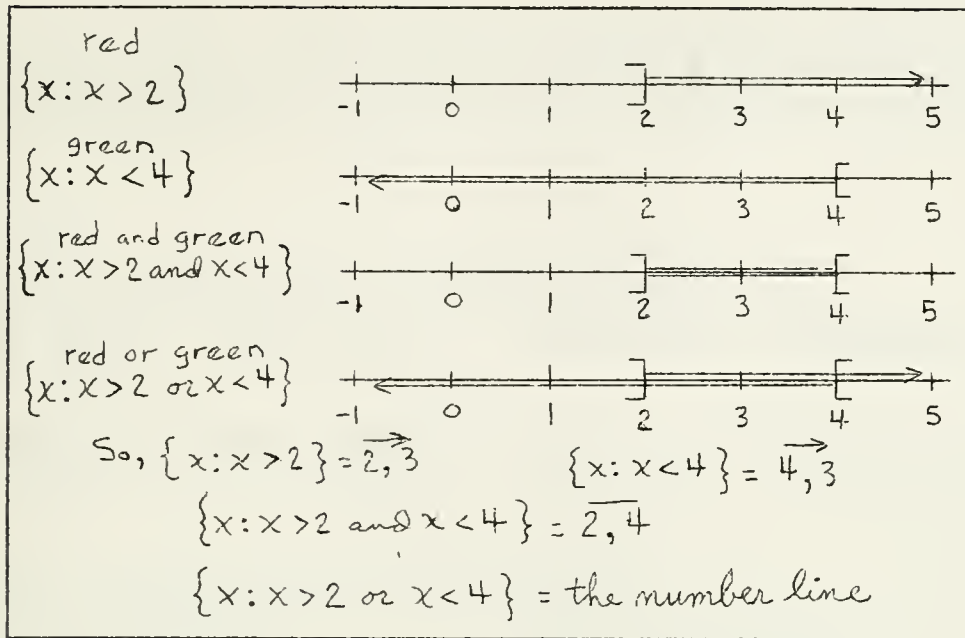 red
{x: x > 2}
-1 0 1 2 3 4 5
green
{x: x < 4}
-1 0 1 2 3 4 5
red and green
{x: x > 2 and x < 4}
-1 0 1 2 3 4 5
red or green
{x: x > 2 or x < 4}
-1 0 1 2 3 4 5
So, {x: x > 2} = $\overrightarrow{2, 3}$ {x: x < 4} = $\overrightarrow{4, 3}$
{x: x > 2 and x < 4} = $\overline{2, 4}$
{x: x > 2 or x < 4} = the number line